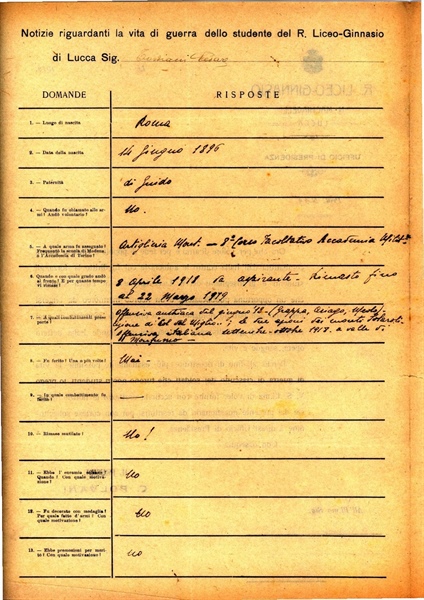 Notizie riguardanti la vita di guerra dello studente del R. Liceo-Ginnasio
di Lucca Sig.
DOMANDE
RISPOSTE
1. — Luogo di nascita
Roma
2. — Data della nascita
14 Giugno 1896
3. — Paternità
di Guido
4. — Quando fu chiamato alle armi? Andò volontario?
No.
5. — A quale arma fu assegnato? Frequentò la scuola di Modena o l'Accademia di Torino?
Artiglieria Mont. — 8º Corso Facoltativo Accademia
6. — Quando e con quale grado andò al fronte? E per quanto tempo vi rimase?
8 Aprile 1918 da aspirante. Rimasto fino
al 22 Marzo 1919
7. — A quali combattimenti prese parte?
offensiva austriaca del giugno
offensiva italiana settembre-ottobre 1918 a valle di
8. — Fu ferito? Una o più volte?
Mai —
9. — In quale combattimento fu ferito?
—
10. — Rimase mutilato?
No!
11. — Ebbe l'encomio solenne? Quando? Con quale motivazione?
No
12. — Fu decorato con medaglia? Per quale fatto d'armi? Con quale motivazione?
No
13. — Ebbe promozioni per merito? Con quale motivazione?
no